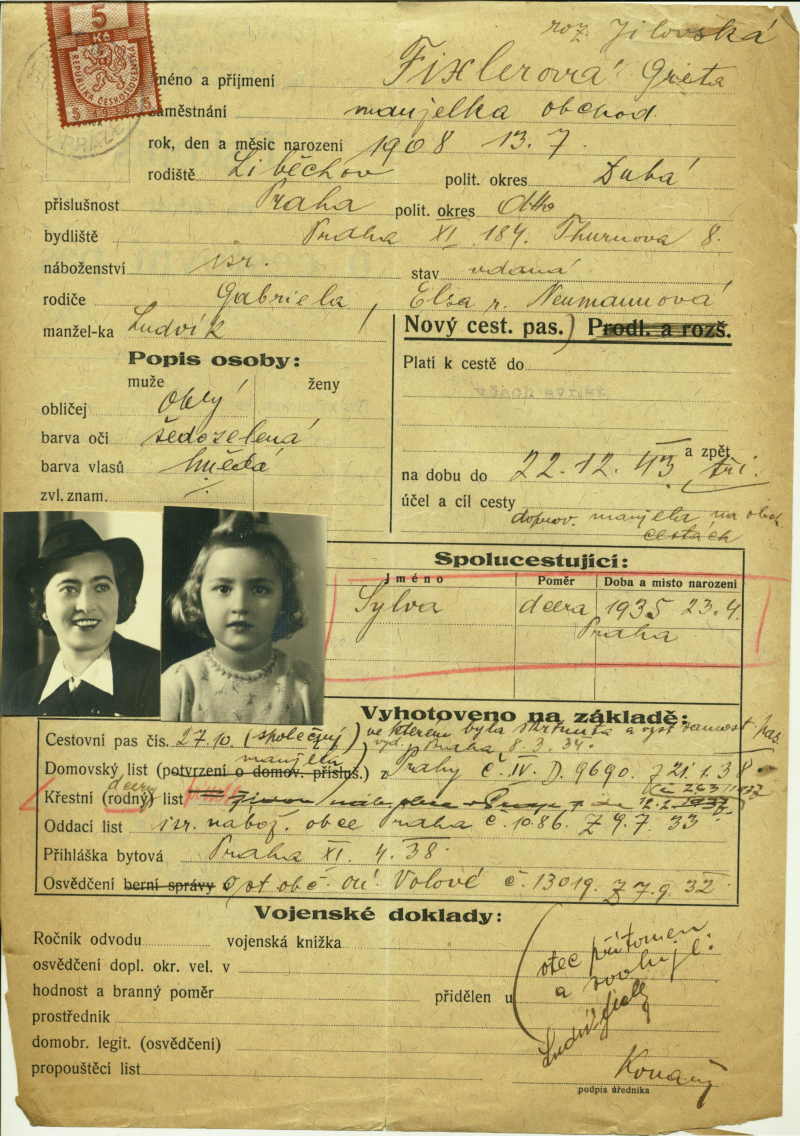 roz. Jilovská
5
Kč
REPUBLIKA ČESKOSLOVENSKÁ
5 5
PRAHA
jméno a příjmení Fixlerová Greta
zaměstnání manželka obchod.
rok, den a měsíc narození 1908 13. 7.
rodiště Liběchov polit. okres Dubá
příslušnost Praha polit. okres dtto
bydliště Praha XI. 184. Thurnova 8.
náboženství isr. stav vdaná
rodiče Gabriela, Elsa r. Neumannová
manžel-ka Ludvík
Nový cest. pas.) Prodl. a rozš.
Popis osoby:
muže ženy
obličej oblý
barva očí šedozelená
barva vlasů hnědá
zvl. znam. ./.
Platí k cestě do
a zpět
na dobu do 22. 12. 43 tři.
účel a cíl cesty doprov. manžela na obch.
cestách
Spolucestující:
Jméno Poměr Doba a místo narození
Sylva dcera 1935 23. 4.
Praha
Vyhotoveno na základě:
Cestovní pas čís. 27.10. (společný) ve kterém byla
manžela Praha 8. 3. 34.
Domovský list (potvrzení o domov. přísluš.) z Prahy č. IV. D. 9690. z 21. 1. 38.
dcery
Křestní (rodný) list
Oddací list isr. nábož. obce Praha č. 1086. z 9. 7. 33.
Přihláška bytová Praha XI. 4. 38.
Osvědčení berní správy o st. obč. č. 13019. z 7. 9. 32.
Vojenské doklady:
Ročník odvodu vojenská knížka
osvědčení dopl. okr. vel. v
hodnost a branný poměr přidělen u
prostředník
domobr. legit. (osvědčení)
propouštěcí list
otec přítomen
a svoluje:
podpis úředníka